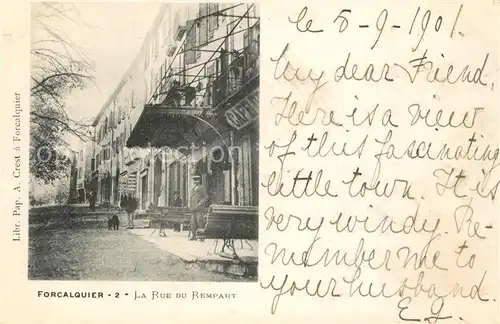 le 5-9-1901.
My dear Friend.
Here is a view
of this fascinating
little town. It is
very windy. Re-
member me to
your husband.
E.J.
CAFÉ
Libr. Pap. A. Crest à Forcalquier
FORCALQUIER - 2 - LA RUE DU REMPART